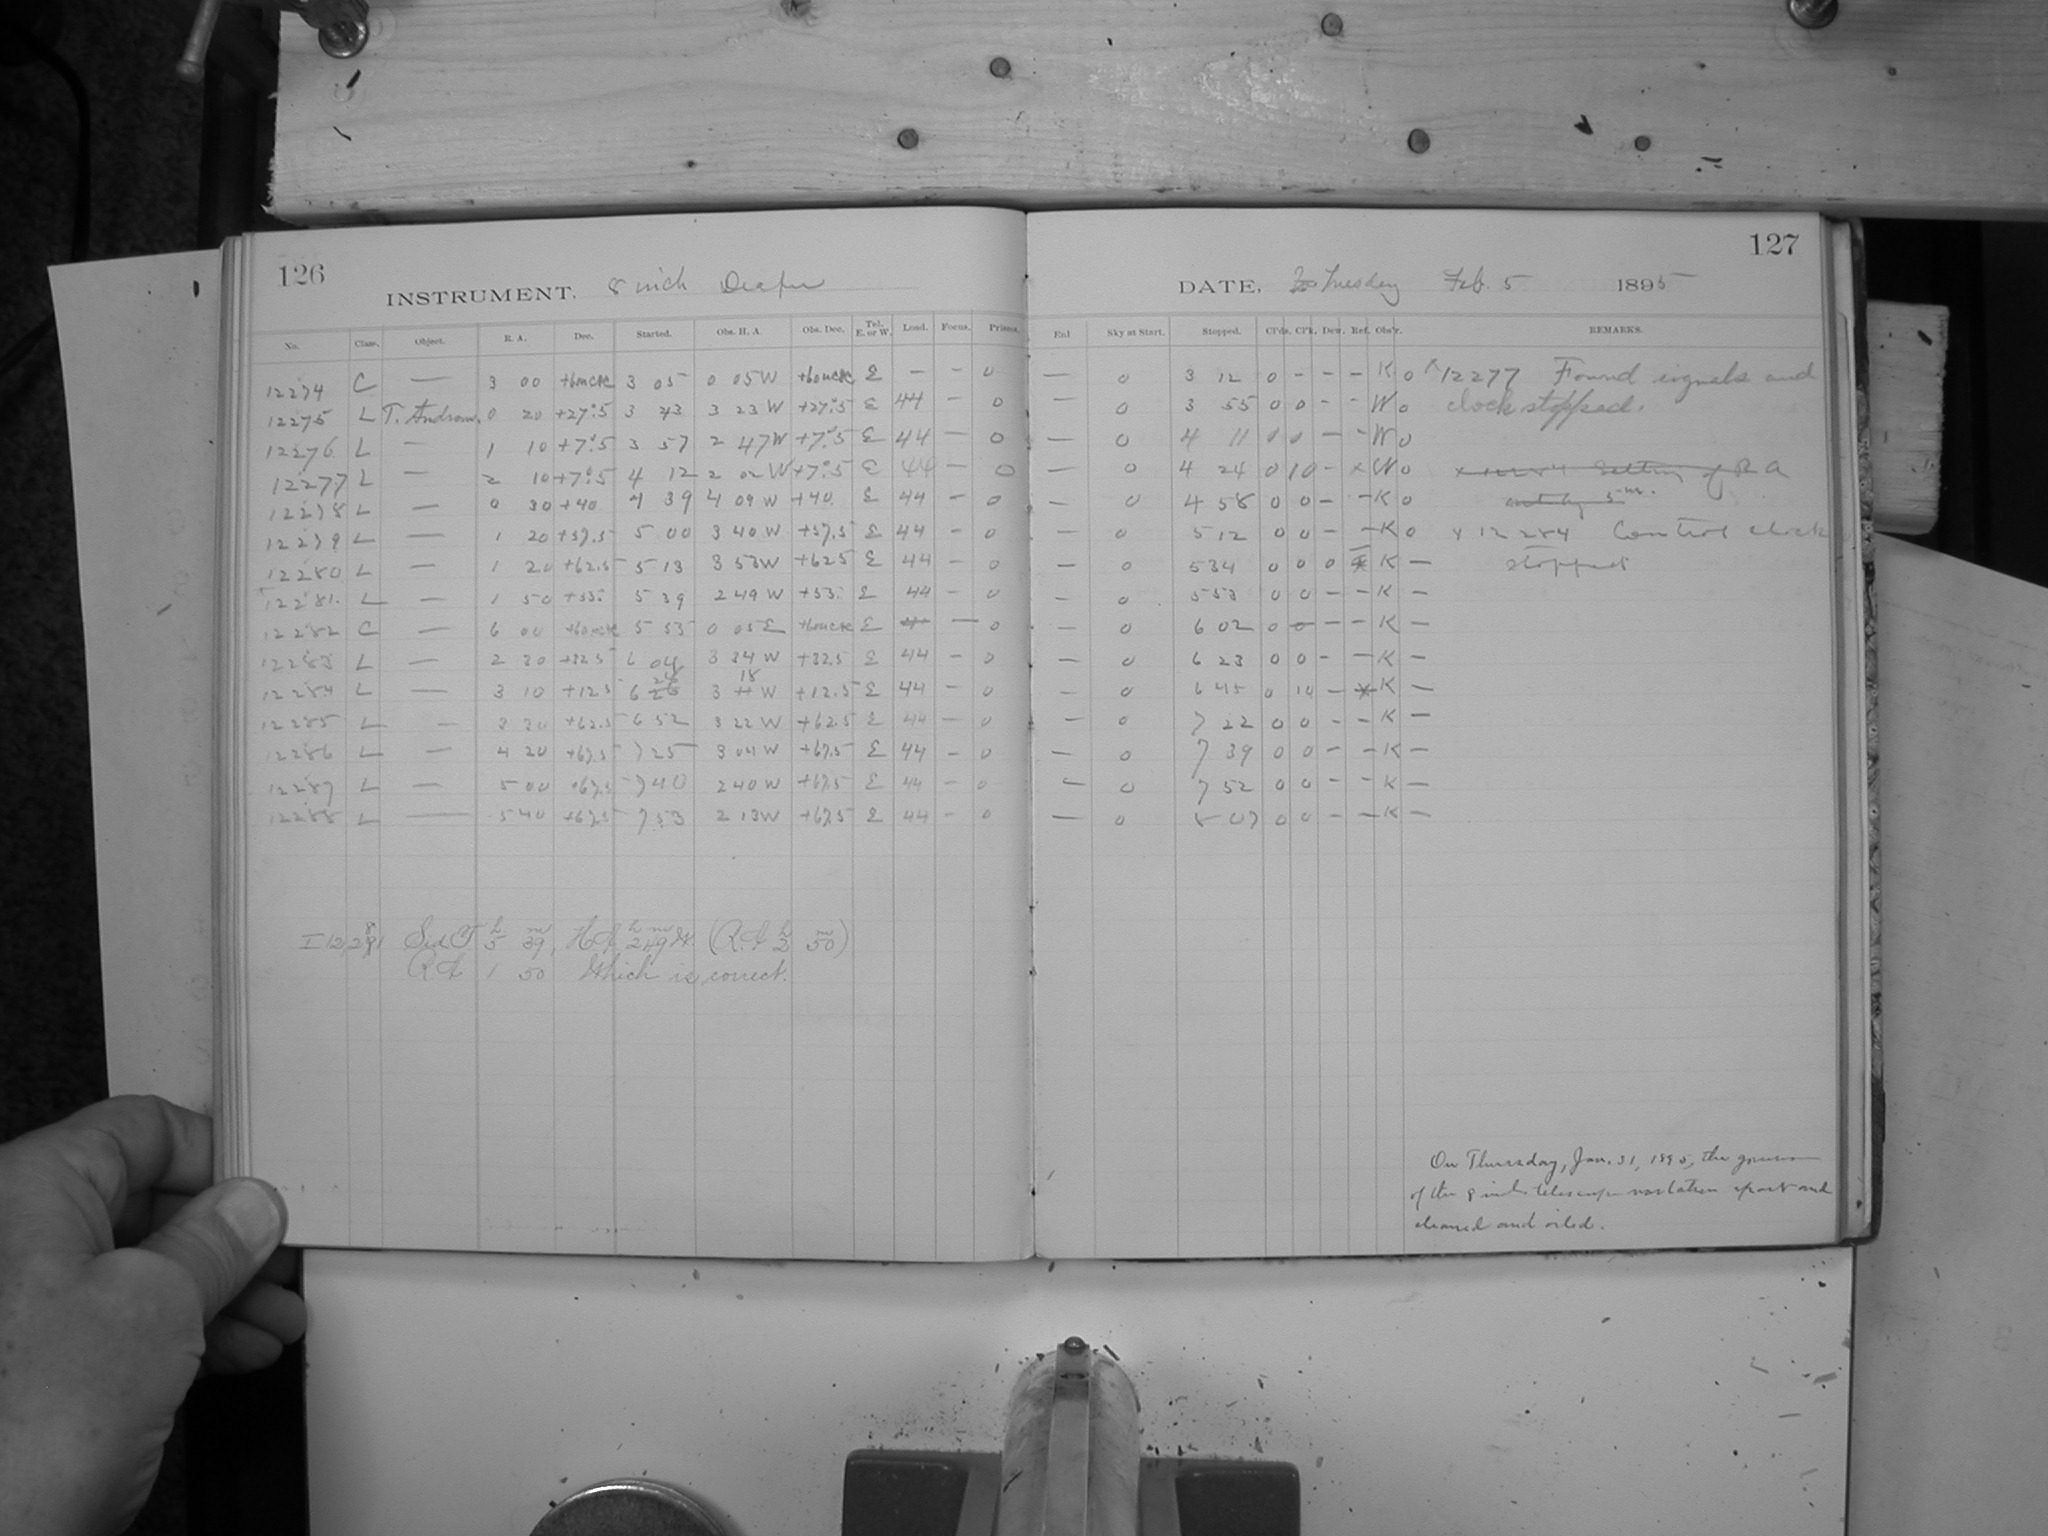 126
INSTRUMENT, 8 inch Draper
No. Class. Object. R. A. Dec. Started. Obs. H. A. Obs. Dec. Tel. E. or W. Load. Focus. Prisms.
12274 C — 3 00 3 05 0 05 W E — — 0
12275 L T. Androm. 0 20 +27°.5 3 43 3 23 W +27°.5 E 44 — 0
12276 L — 1 10 +7°.5 3 57 2 47 W +7°.5 E 44 — 0
12277 L — 2 10 +7°.5 4 12 2 02 W +7°.5 E 44 — 0
12278 L — 0 30 +40 4 39 4 09 W +40 E 44 — 0
12279 L — 1 20 +37.5 5 00 3 40 W +37.5 E 44 — 0
12280 L — 1 20 +62.5 5 13 3 53 W +62.5 E 44 — 0
12281 L — 1 50 +53 5 39 2 49 W +53 E 44 — 0
12282 C — 6 00 5 55 0 05 E E — 0
12283 L — 2 30 +32.5 6 04 3 34 W +32.5 E 44 — 0
12284 L — 3 10 +12.5 6 28 3 18 W +12.5 E 44 — 0
12285 L — 3 30 +62.5 6 52 3 22 W +62.5 E 44 — 0
12286 L — 4 20 +67.5 7 25 3 04 W +67.5 E 44 — 0
12287 L — 5 00 +67.5 7 40 2 40 W +67.5 E 44 — 0
12288 L — 5 40 +67.5 7 53 2 13 W +67.5 E 44 — 0
I 12,281 Sid. T. 5h 39m, H.A. 2h 49m W. (R.A. 2h 50m)
R A 1 50 Which is correct.
127
DATE, Tuesday Feb. 5 1895
Enl Sky at Start. Stopped. Cl'ds. Cl'k. Dew. Ref. Obs'r. REMARKS.
— 0 3 12 0 – – – K 0 x 12277 Found signals and
— 0 3 55 0 0 – – W 0 clock stopped.
— 0 4 11 0 0 – – W 0
— 0 4 24 0 10 – x W 0 x 12284 Setting of R A
— 0 4 58 0 0 – – K 0 5m.
— 0 5 12 0 0 – – K 0 x 12284 Control clock
— 0 5 34 0 0 0 K — stopped
— 0 5 53 0 0 – – K —
— 0 6 02 0 0 – – K —
— 0 6 23 0 0 – – K —
— 0 6 45 0 10 – x K —
— 0 7 22 0 0 – – K —
— 0 7 39 0 0 – – K —
— 0 7 52 0 0 – – K —
— 0 8 07 0 0 – – K —
On Thursday, Jan. 31, 1895, the
of the 8 inch telescope was taken apart and
cleaned and oiled.